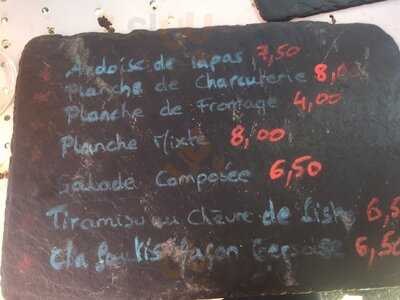 Ardoise de tapas 7,50
Planche de Charcuterie 8,00
Planche de Fromage 4,00
Planche Mixte 8,00
Salade Composée 6,50
Tiramisu au Chèvre de 6,5
Clafoutis façon 6,50